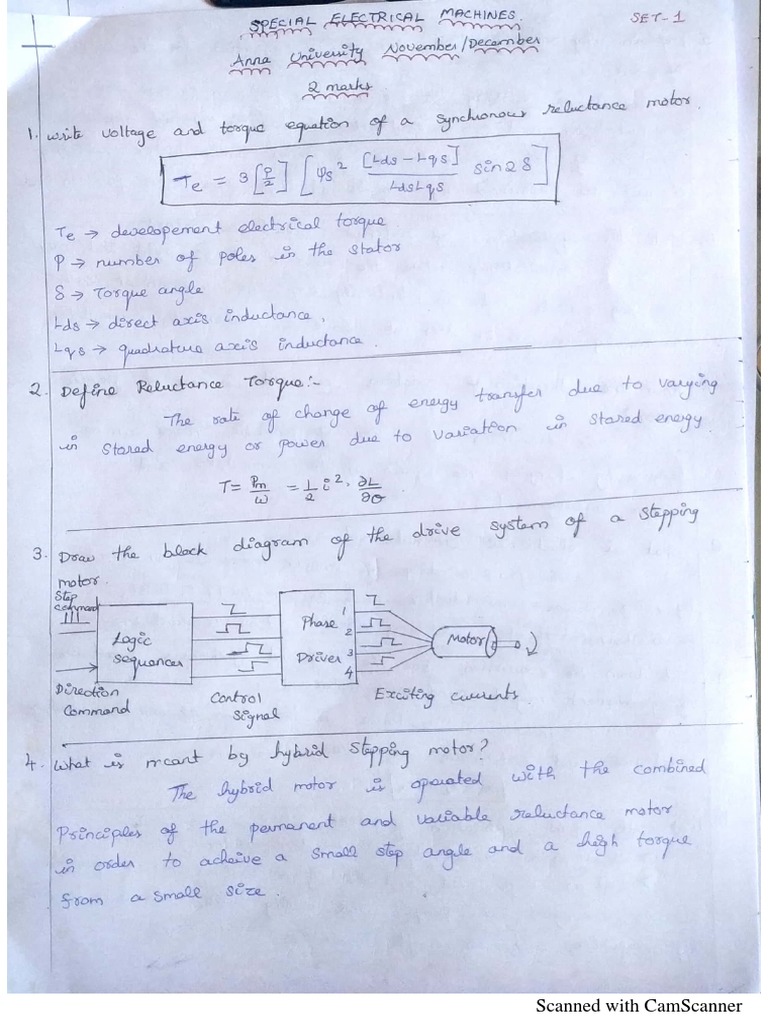 SPECIAL ELECTRICAL MACHINES. SET-1
Anna University November/December
2 marks
1. Write voltage and torque equation of a synchronous reluctance motor.
Te = 3 [P/2] [ φs² [Lds - Lqs] / LdsLqs sin2δ ]
Te → developement electrical torque
P → number of poles in the stator
δ → Torque angle
Lds → direct axis inductance.
Lqs → quadrature axis inductance.
2. Define Reluctance Torque:-
The rate of change of energy transfer due to varying
in stored energy or power due to variation in stored energy.
T = Pm/ω = 1/2 i² . ∂L/∂θ
3. Draw the block diagram of the drive system of a stepping
motor.
Step
command
Logic
sequences
Phase
Driver
1
2
3
4
Motor
Direction
Command
Control
Signal
Exciting currents.
4. What is meant by hybrid stepping motor?
The hybrid motor is operated with the combined
Principles of the permanent and variable reluctance motor
in order to acheive a small step angle and a high torque
from a small size.
Scanned with CamScanner